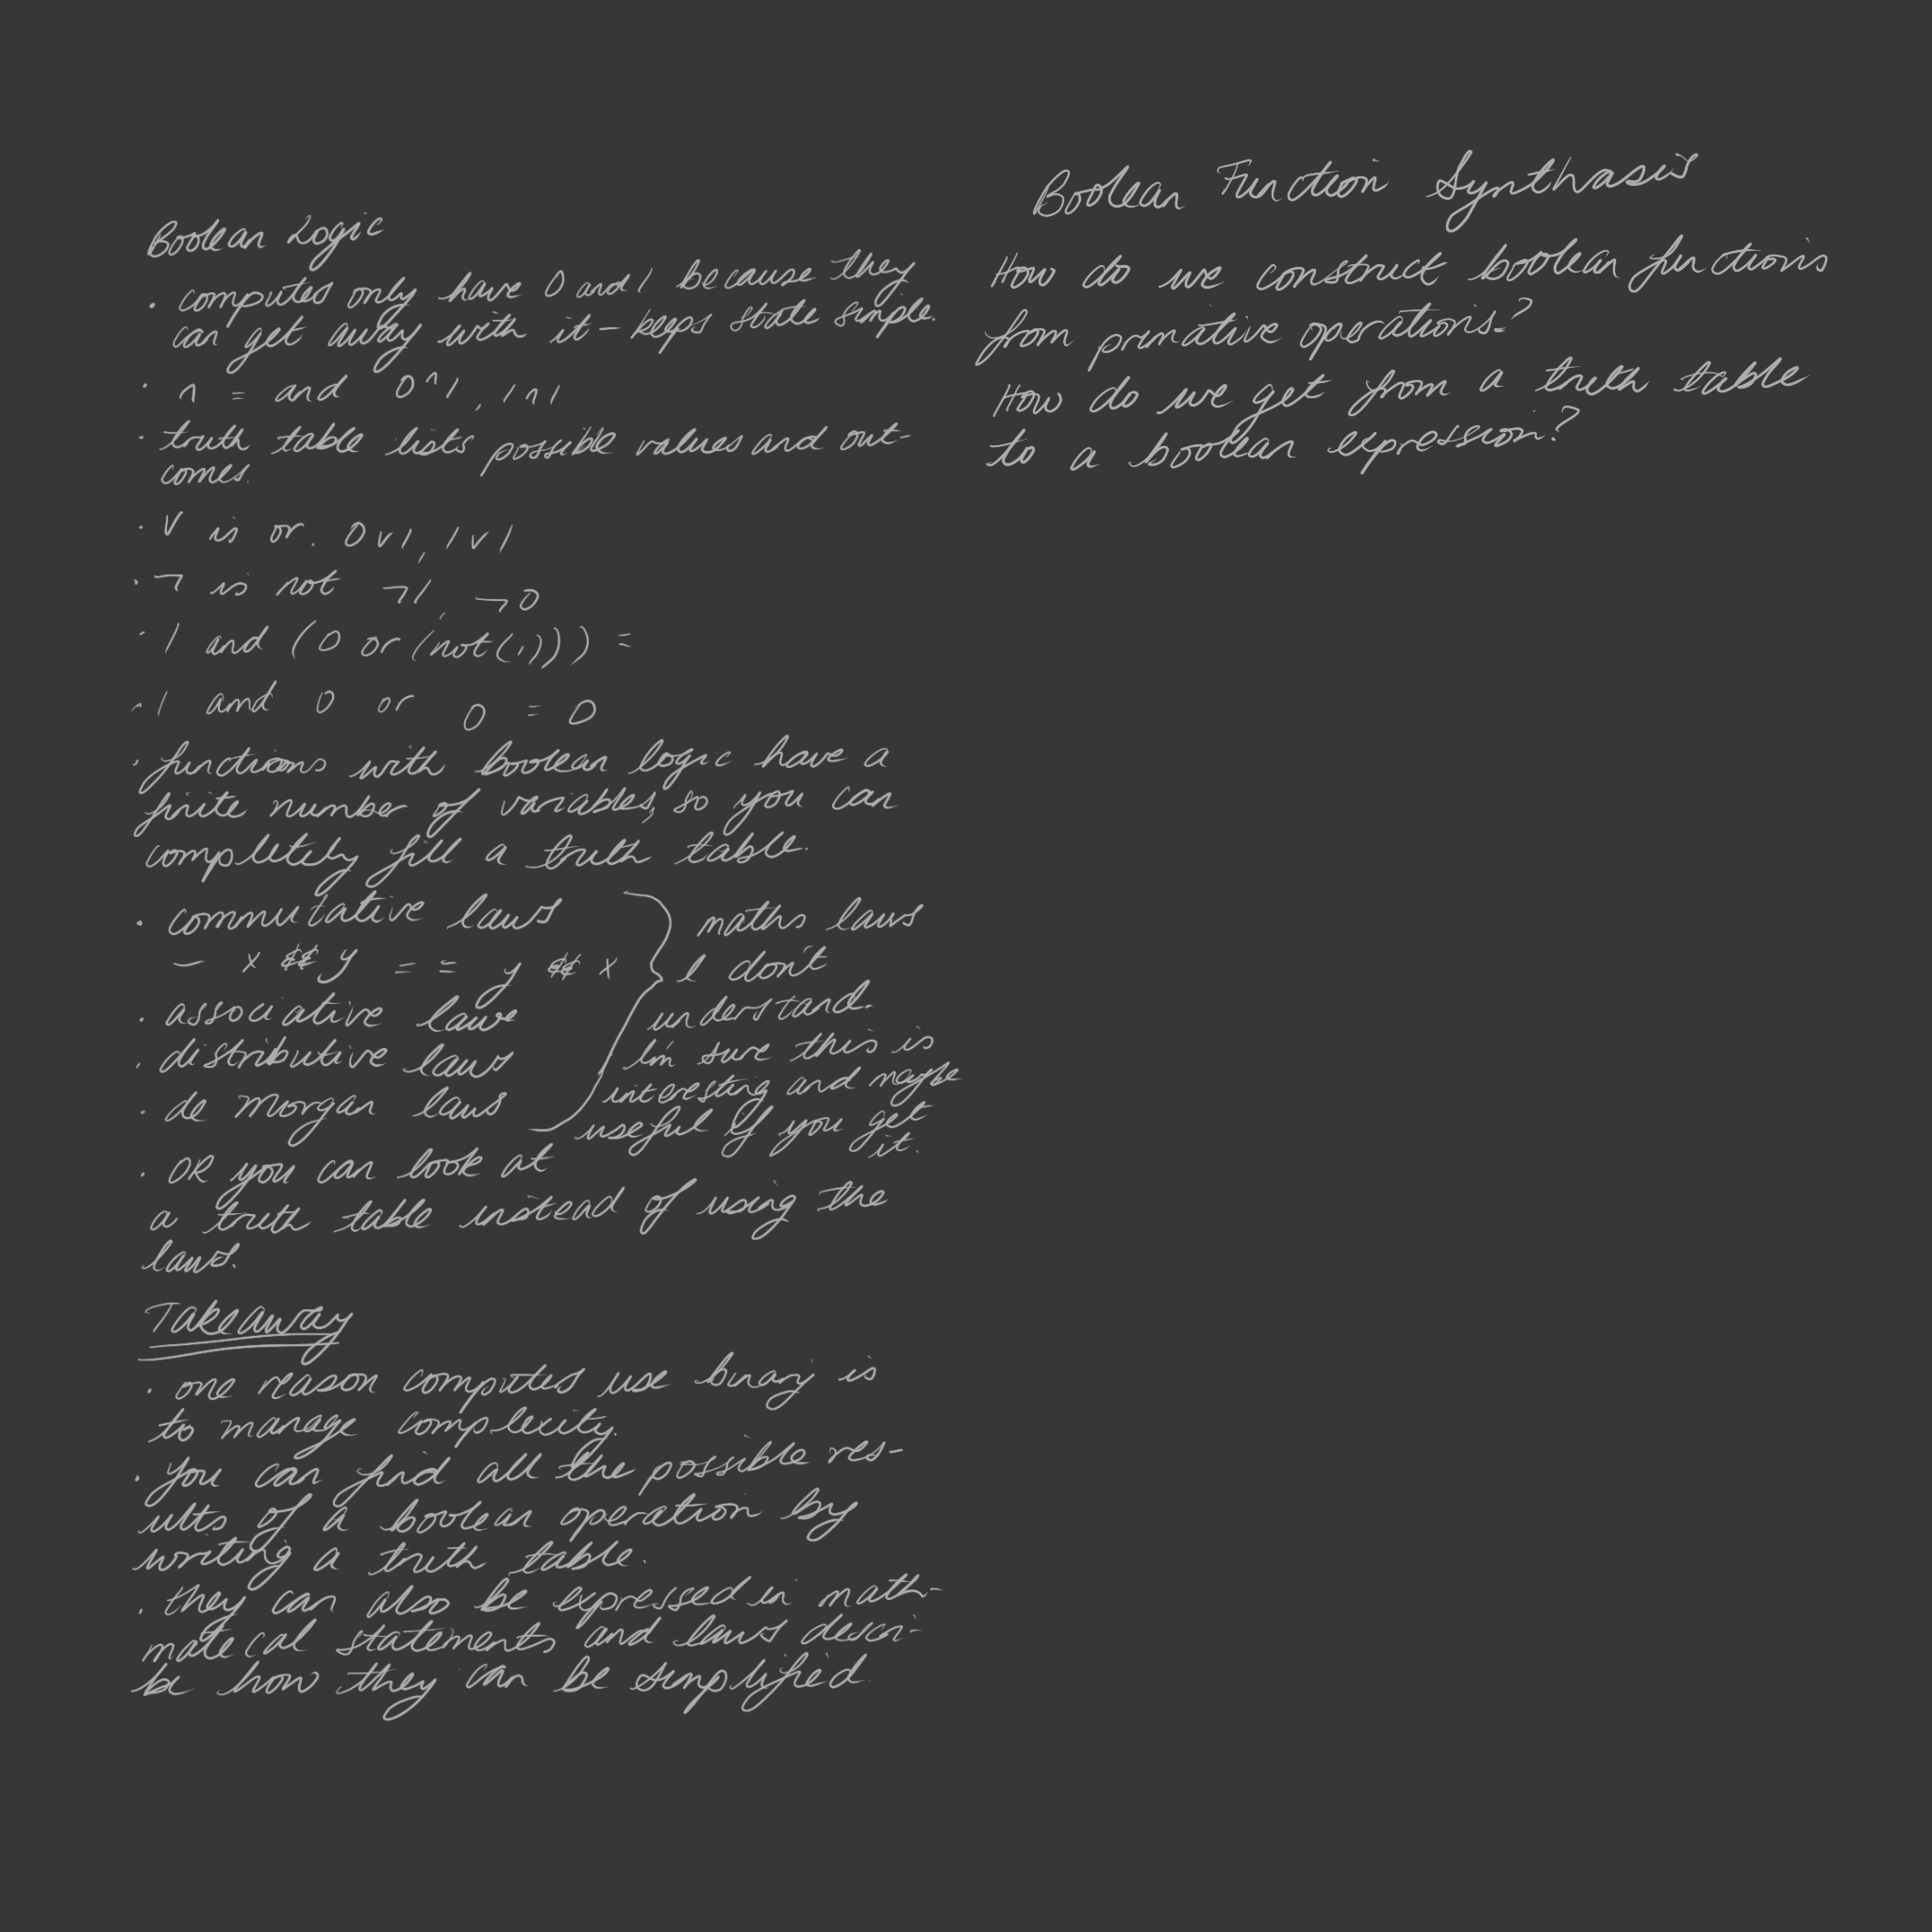 Boolean Logic
· computes only have 0 and 1 because they
can get away with it - keeps state simple.
· ∧ = and 0∧1, 1∧1
· truth table lists possible values and out-
comes.
· V is or. 0v1, 1v1
· ¬ is not ¬1, ¬0
· 1 and (0 or (not(1))) =
· 1 and 0 or 0 = 0
· functions with boolean logic have a
finite number of variables, so you can
completely fill a truth table.
· commutative laws
- x && y == y && x
· associative laws
· distributive laws
· de Morgan laws
maths laws
I don't
understand.
I'm sure this is
interesting and maybe
useful if you get
it.
· OR you can look at
a truth table instead of using the
laws.
Takeaway
· one reason computes use binary is
to manage complexity.
· you can find all the possible res-
ults of a boolean operation by
writing a truth table.
· they can also be expressed in math-
matecal statements and laws descri-
be how they can be simplified.
Boolean Function Synthasis
How do we construct boolean functions
from primative operations?
How do we get from a truth table
to a boolean expression?